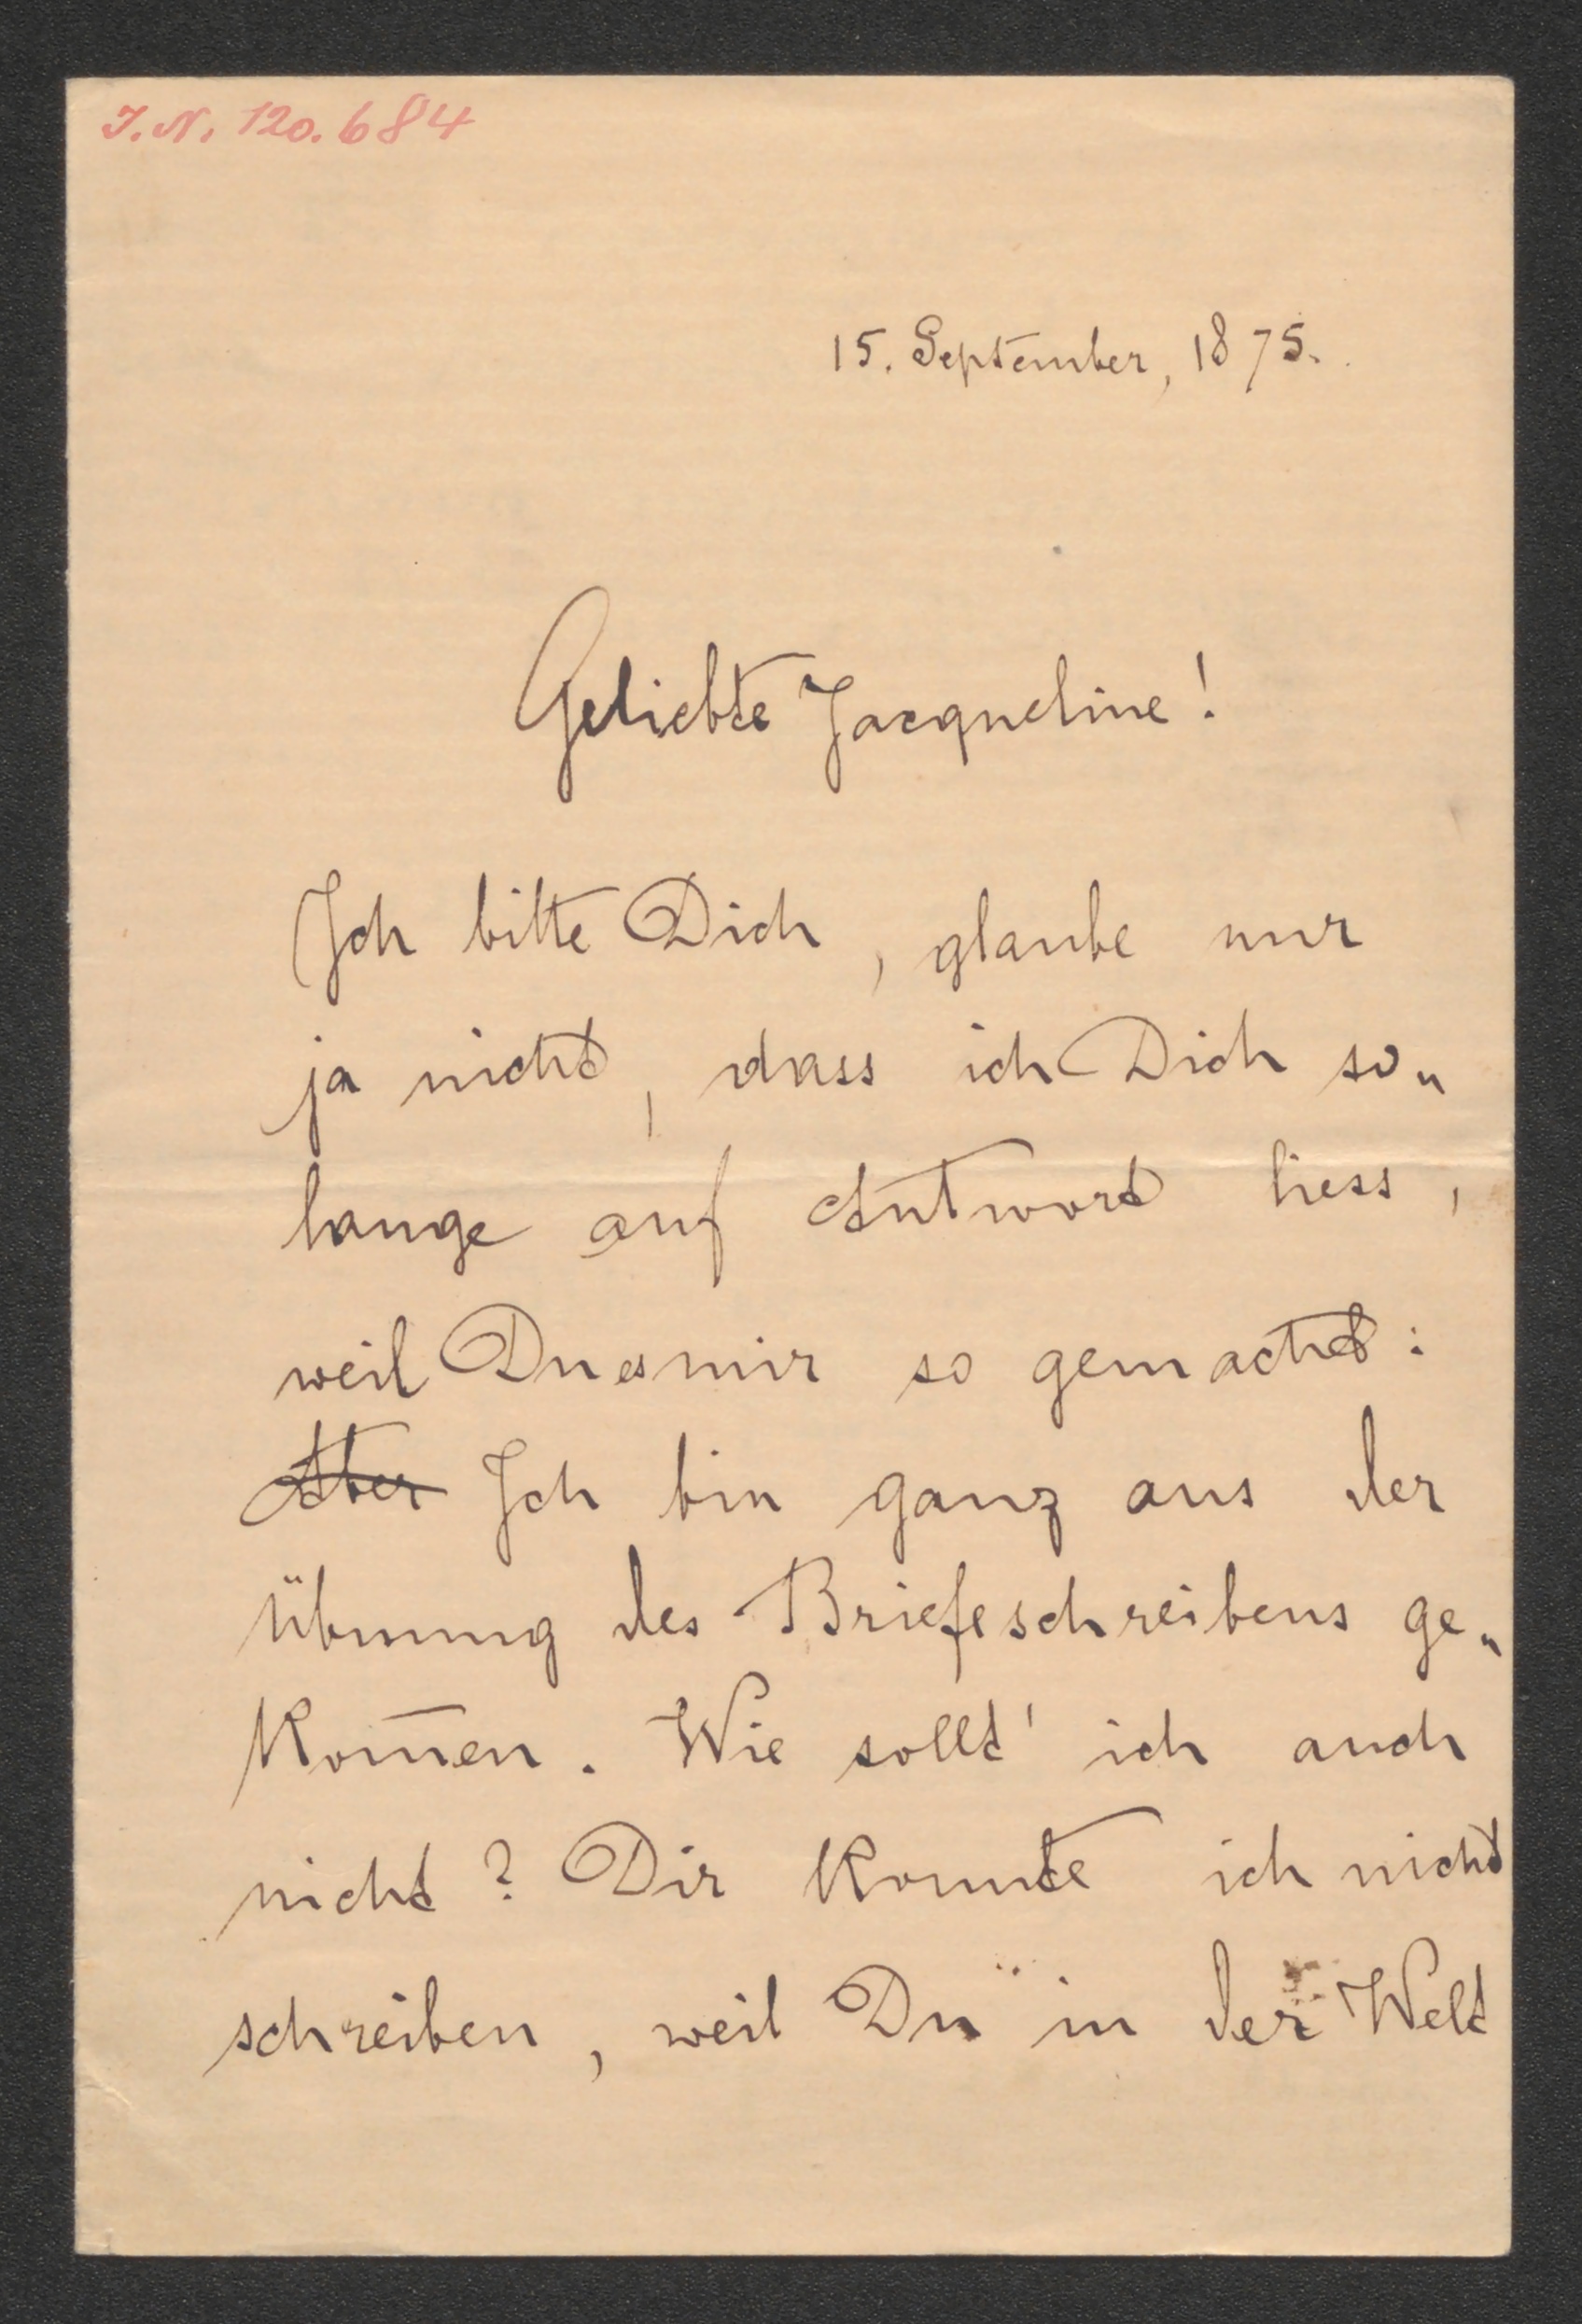 J.N. 120.684
15. September, 1875.
Geliebte Jacqueline!
Ich bitte Dich, glaube nur
ja nicht, dass ich Dich so„
lange auf Antwort liess,
weil Du es mir so gemacht:
Aber Ich bin ganz aus der
Übnung des Briefeschreibens ge„
kom̅en. Wie sollt' ich auch
nicht? Dir konnte ich nicht
schreiben, weil Du in der Welt